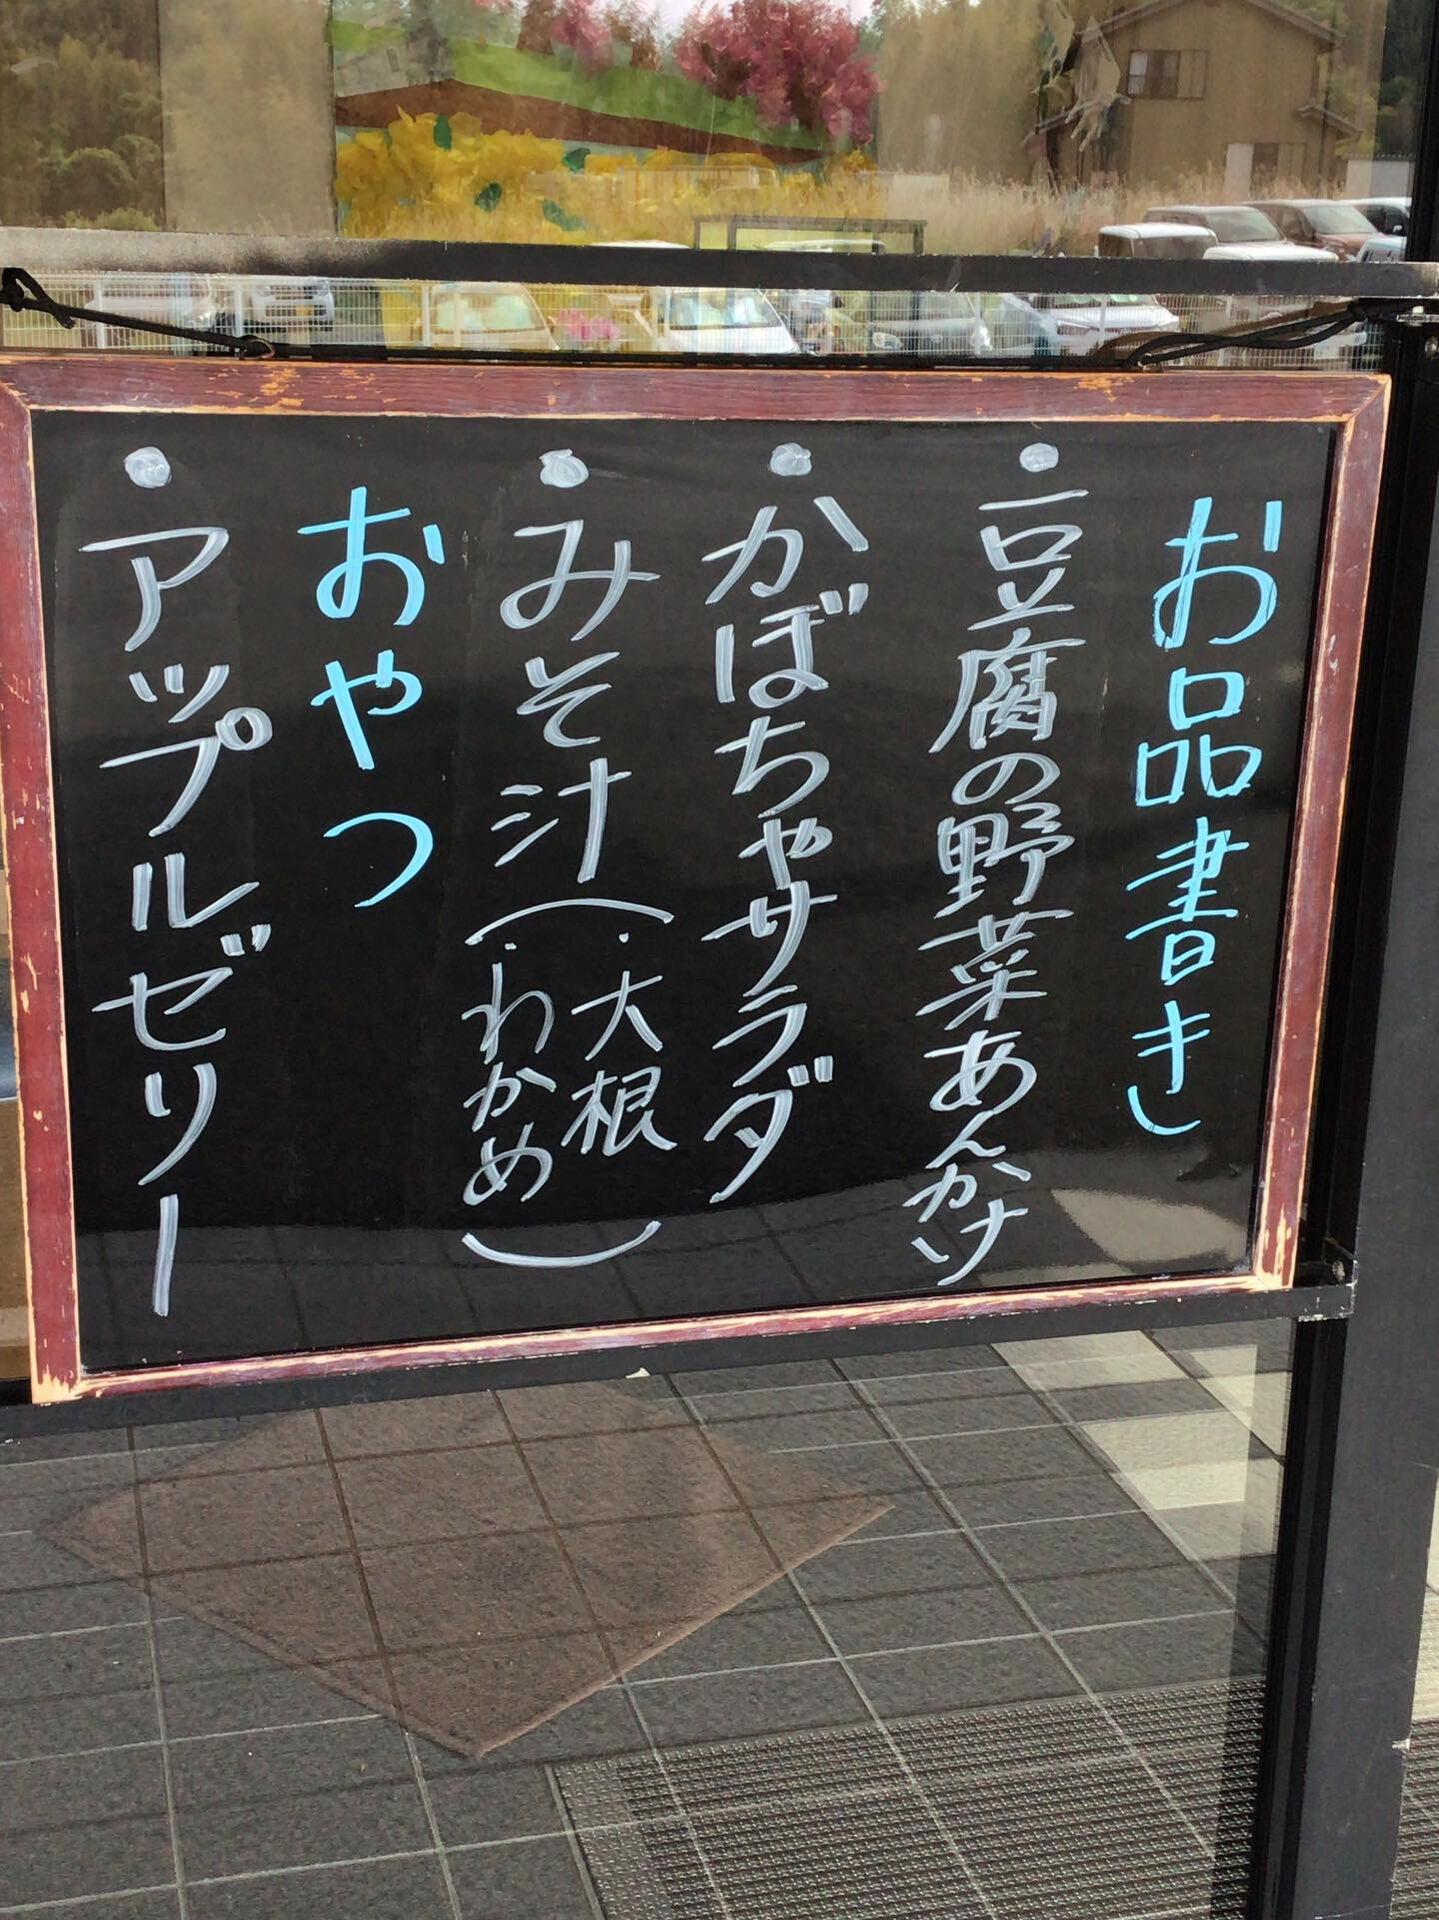 お品書き
・豆腐の野菜あんかけ
・かぼちゃサラダ
・みそ汁(・大根
・わかめ)
おやつ
・アップルゼリー